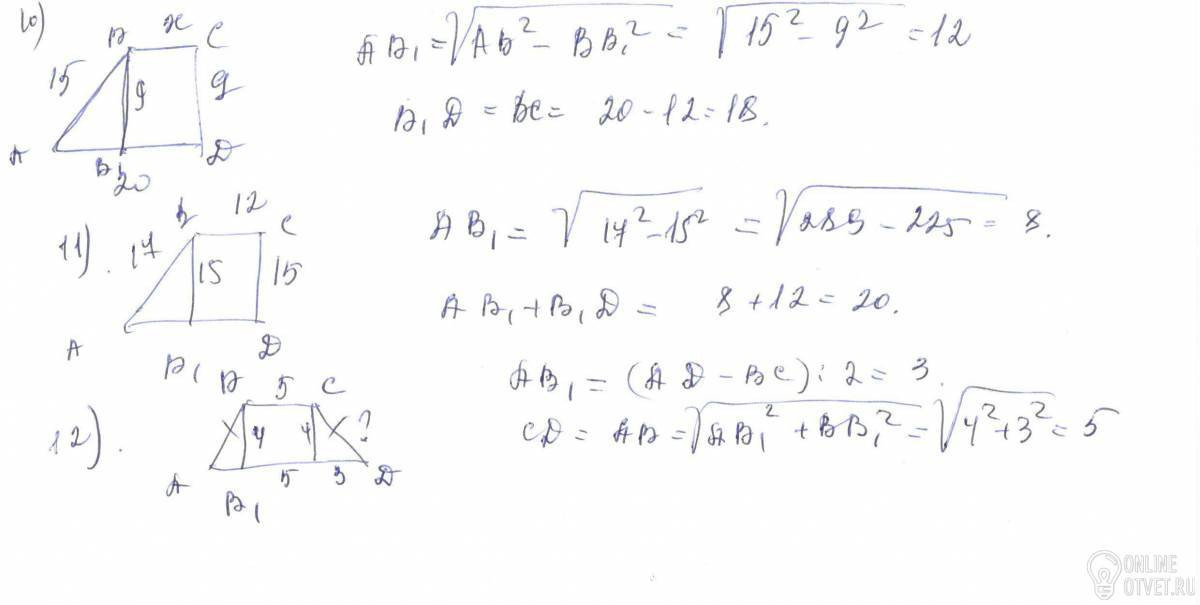 10)
B x C
15 9 9
A B₁ D
20
AB₁ = √AB² - BB₁² = √15² - 9² = 12
B₁D = BC = 20 - 12 = 18.
11).
B 12 C
17 15 15
A B₁ D
AB₁ = √17² - 15² = √289 - 225 = 8.
AB₁ + B₁D = 8 + 12 = 20.
12).
B 5 C
4 4 ?
A B₁ 5 3 D
AB₁ = (AD - BC) : 2 = 3.
CD = AB = √AB₁² + BB₁² = √4² + 3² = 5
ONLINE
OTVET.RU